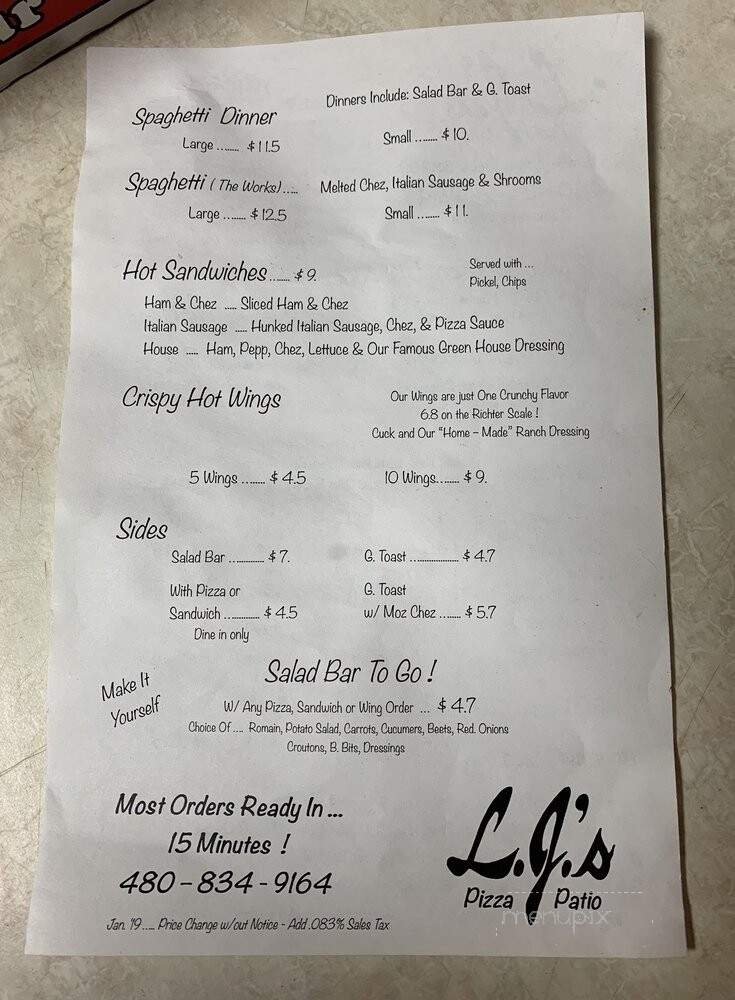 Dinners Include: Salad Bar & G. Toast
Spaghetti Dinner
Large ........ $11.5 Small ........ $10.
Spaghetti (The Works)..... Melted Chez, Italian Sausage & Shrooms
Large ........ $12.5 Small ........ $11.
Hot Sandwiches ........ $9. Served with ...
Pickel, Chips
Ham & Chez ..... Sliced Ham & Chez
Italian Sausage ..... Hunked Italian Sausage, Chez, & Pizza Sauce
House ..... Ham, Pepp, Chez, Lettuce & Our Famous Green House Dressing
Crispy Hot Wings
Our Wings are just One Crunchy Flavor
6.8 on the Richter Scale !
Cuck and Our "Home - Made" Ranch Dressing
5 Wings ........ $4.5 10 Wings........ $9.
Sides
Salad Bar .............. $7. G. Toast ................... $4.7
With Pizza or G. Toast
Sandwich .............. $4.5 w/ Moz Chez ........ $5.7
Dine in only
Make It
Yourself
Salad Bar To Go !
W/ Any Pizza, Sandwich or Wing Order ... $4.7
Choice Of .... Romain, Potato Salad, Carrots, Cucumers, Beets, Red. Onions
Croutons, B. Bits, Dressings
Most Orders Ready In ...
15 Minutes !
480-834-9164
L.J.'s
Pizza Patio
menupix
Jan. '19..... Price Change w/out Notice - Add .083% Sales Tax